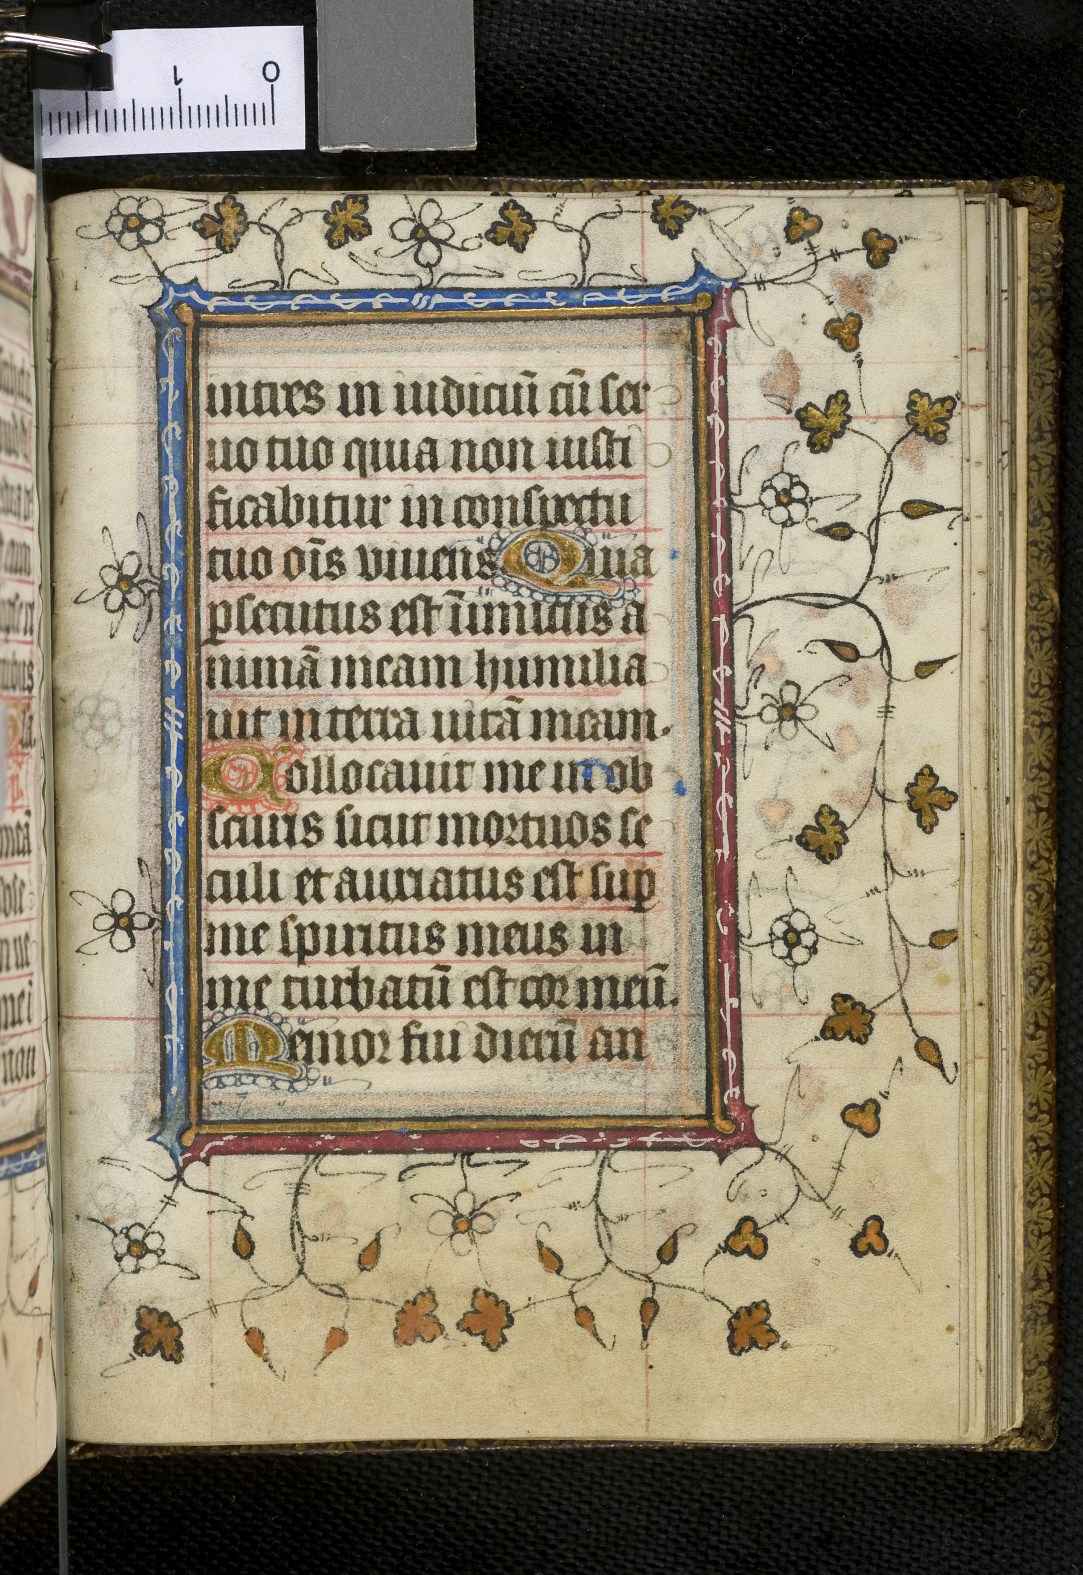 1 0
intres in iudiciū cū ser
uo tuo quia non iusti
ficabitur in conspectu
tuo oīs viuens Quia
ꝑsecutus est īimicus a
nimā meam humilia
uit in terra uitā meam.
Collocauit me in ob
scuris sicut mortuos se
culi et anxiatus est suꝑ
me spiritus meus in
me turbatū est cor meū.
Memor fui dierū an
non